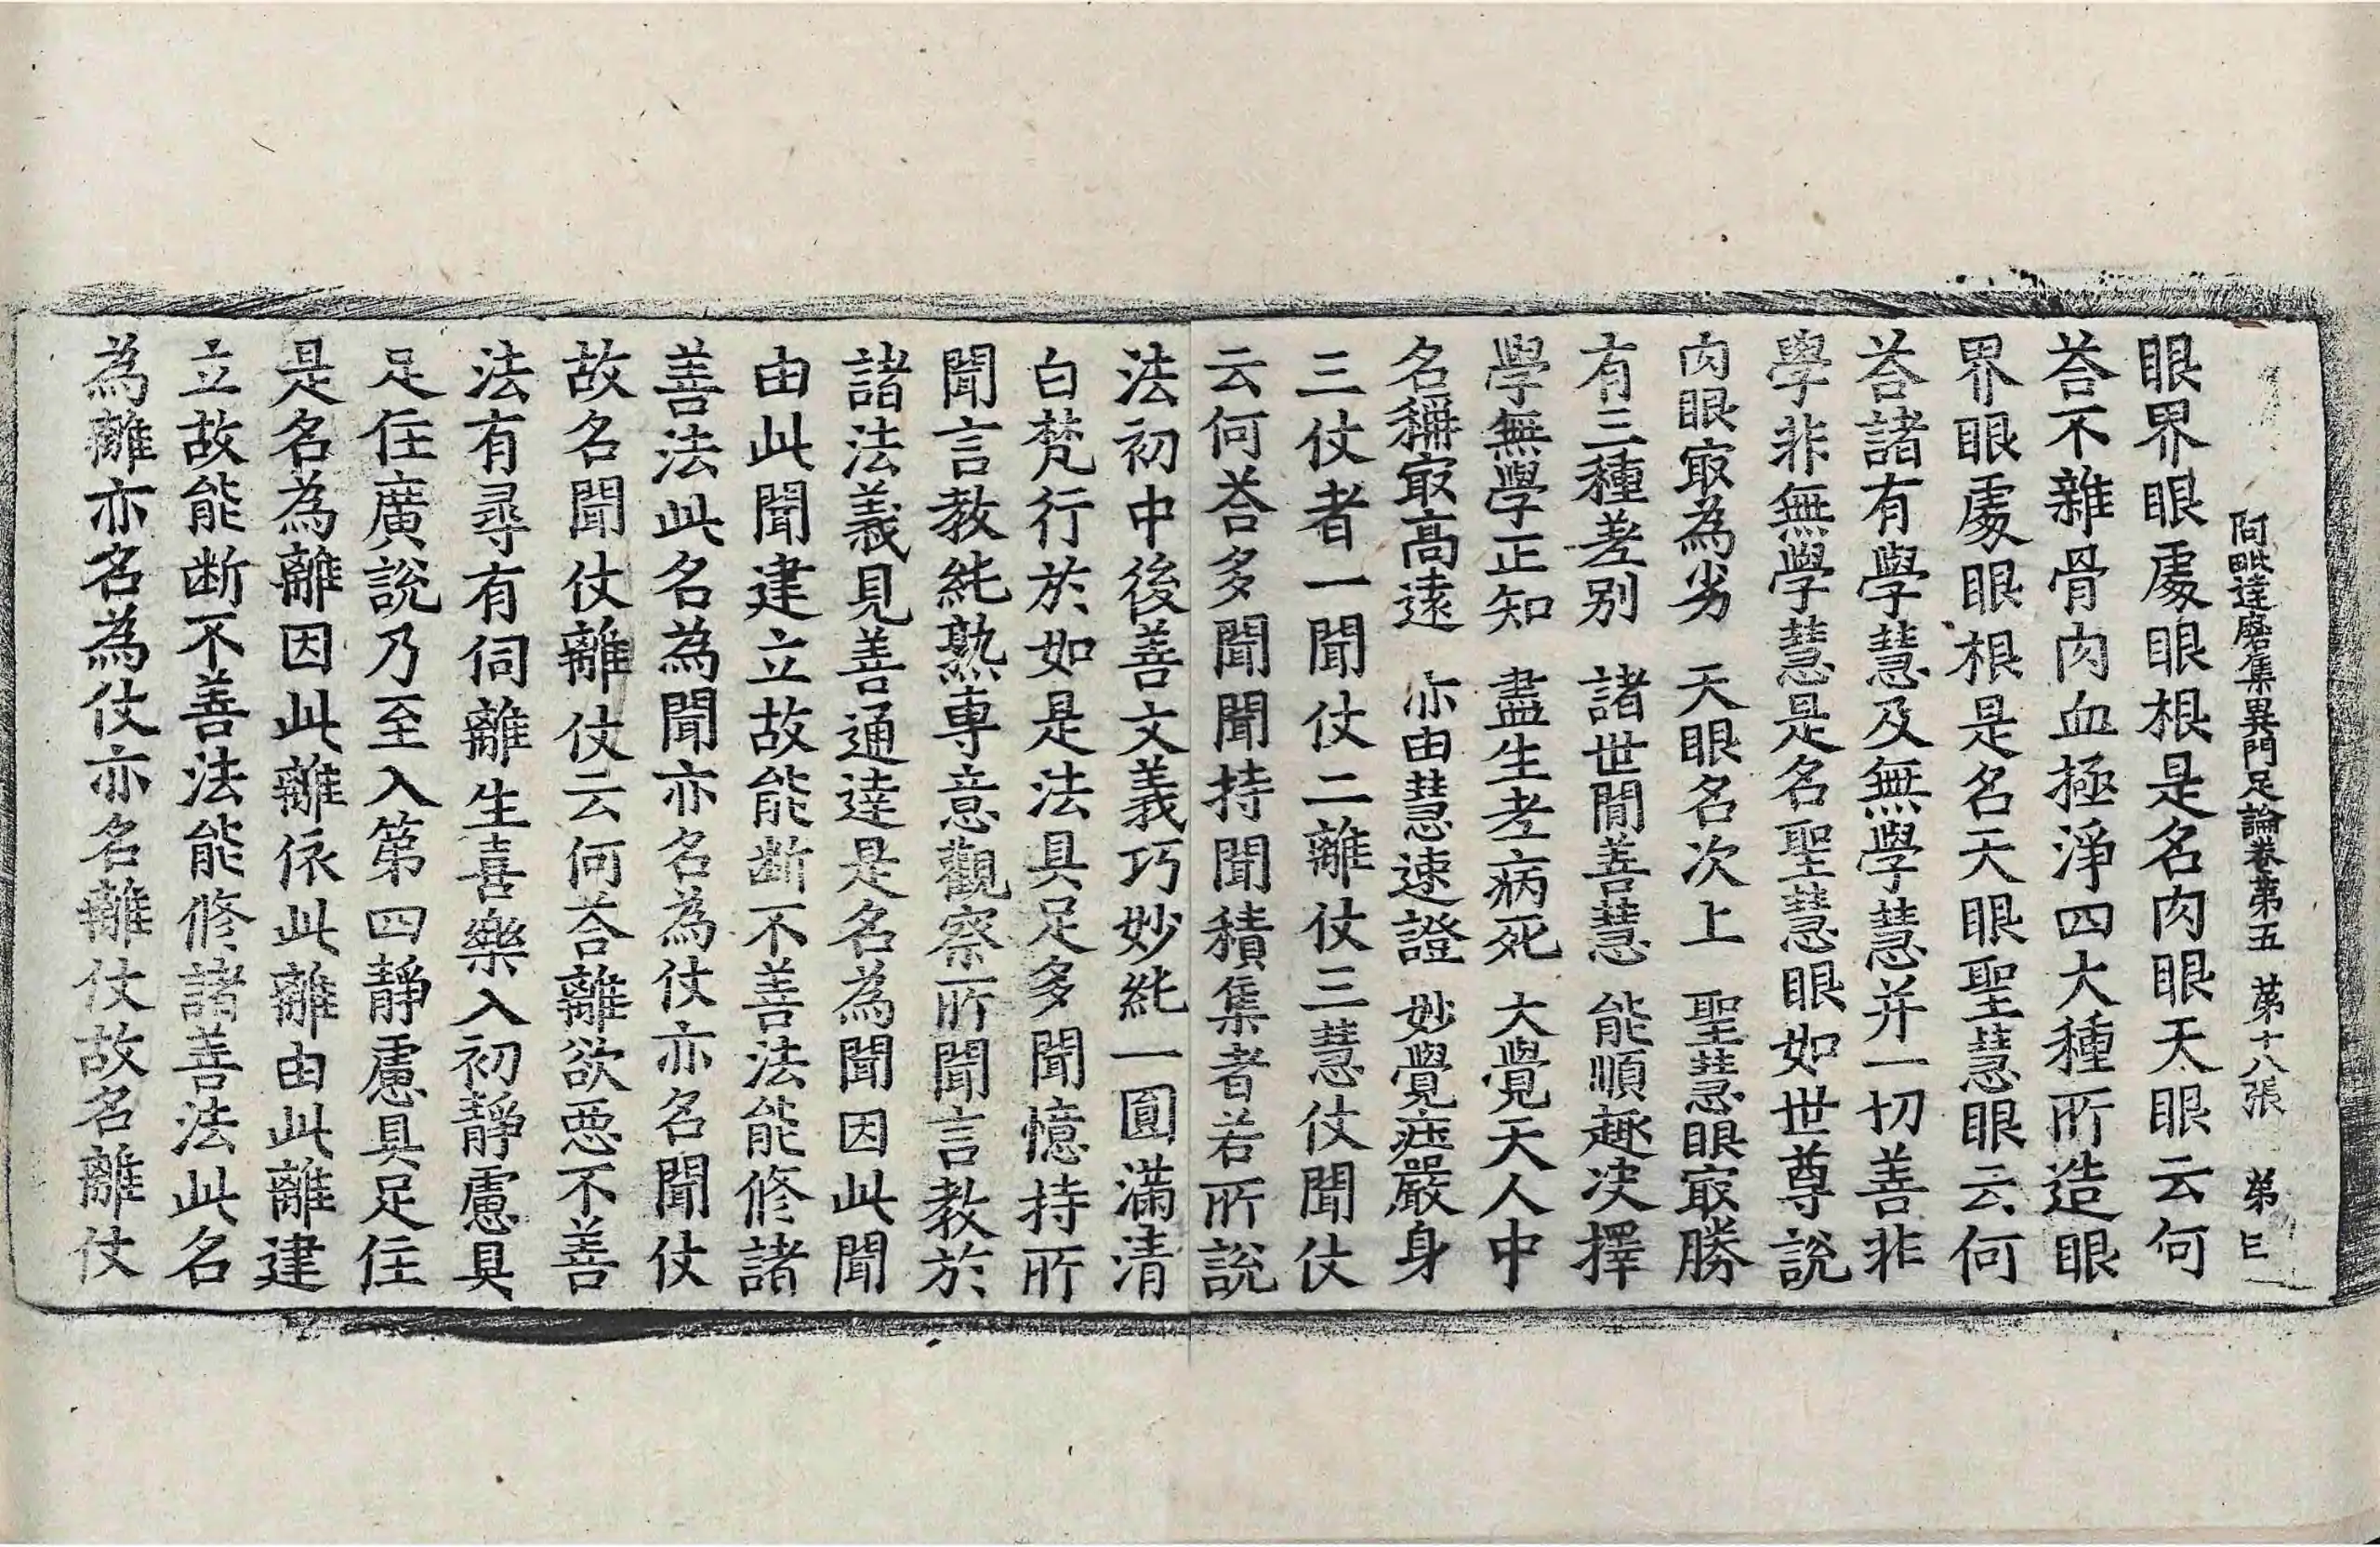 阿毗達磨集異門足論卷第五　第十八張　弟
眼界眼處眼根是名肉眼天眼云何
荅不雜骨肉血極淨四大種所造眼
界眼處眼根是名天眼聖慧眼云何
荅諸有學慧及無學慧并一切善非
學非無學慧是名聖慧眼如世尊說
肉眼㝡為劣　天眼名次上　聖慧眼㝡勝
有三種差別　諸世間善慧　能順趣決擇
學無學正知　盡生老病死　大覺天人中
名稱㝡高遠　亦由慧速證　妙覺莊嚴身
三仗者一聞仗二離仗三慧仗聞仗
云何荅多聞聞持聞積集者若所說
法初中後善文義巧妙純一圓滿清
白梵行於如是法具足多聞憶持所
聞言教純熟專意觀察所聞言教於
諸法義見善通達是名為聞因此聞
由此聞建立故能断不善法能修諸
善法此名為聞亦名為仗亦名聞仗
故名聞仗離仗云何荅離欲惡不善
法有尋有伺離生喜樂入初靜慮具
足住廣說乃至入第四靜慮具足住
是名為離因此離依此離由此離建
立故能断不善法能修諸善法此名
為離亦名為仗亦名離仗故名離仗